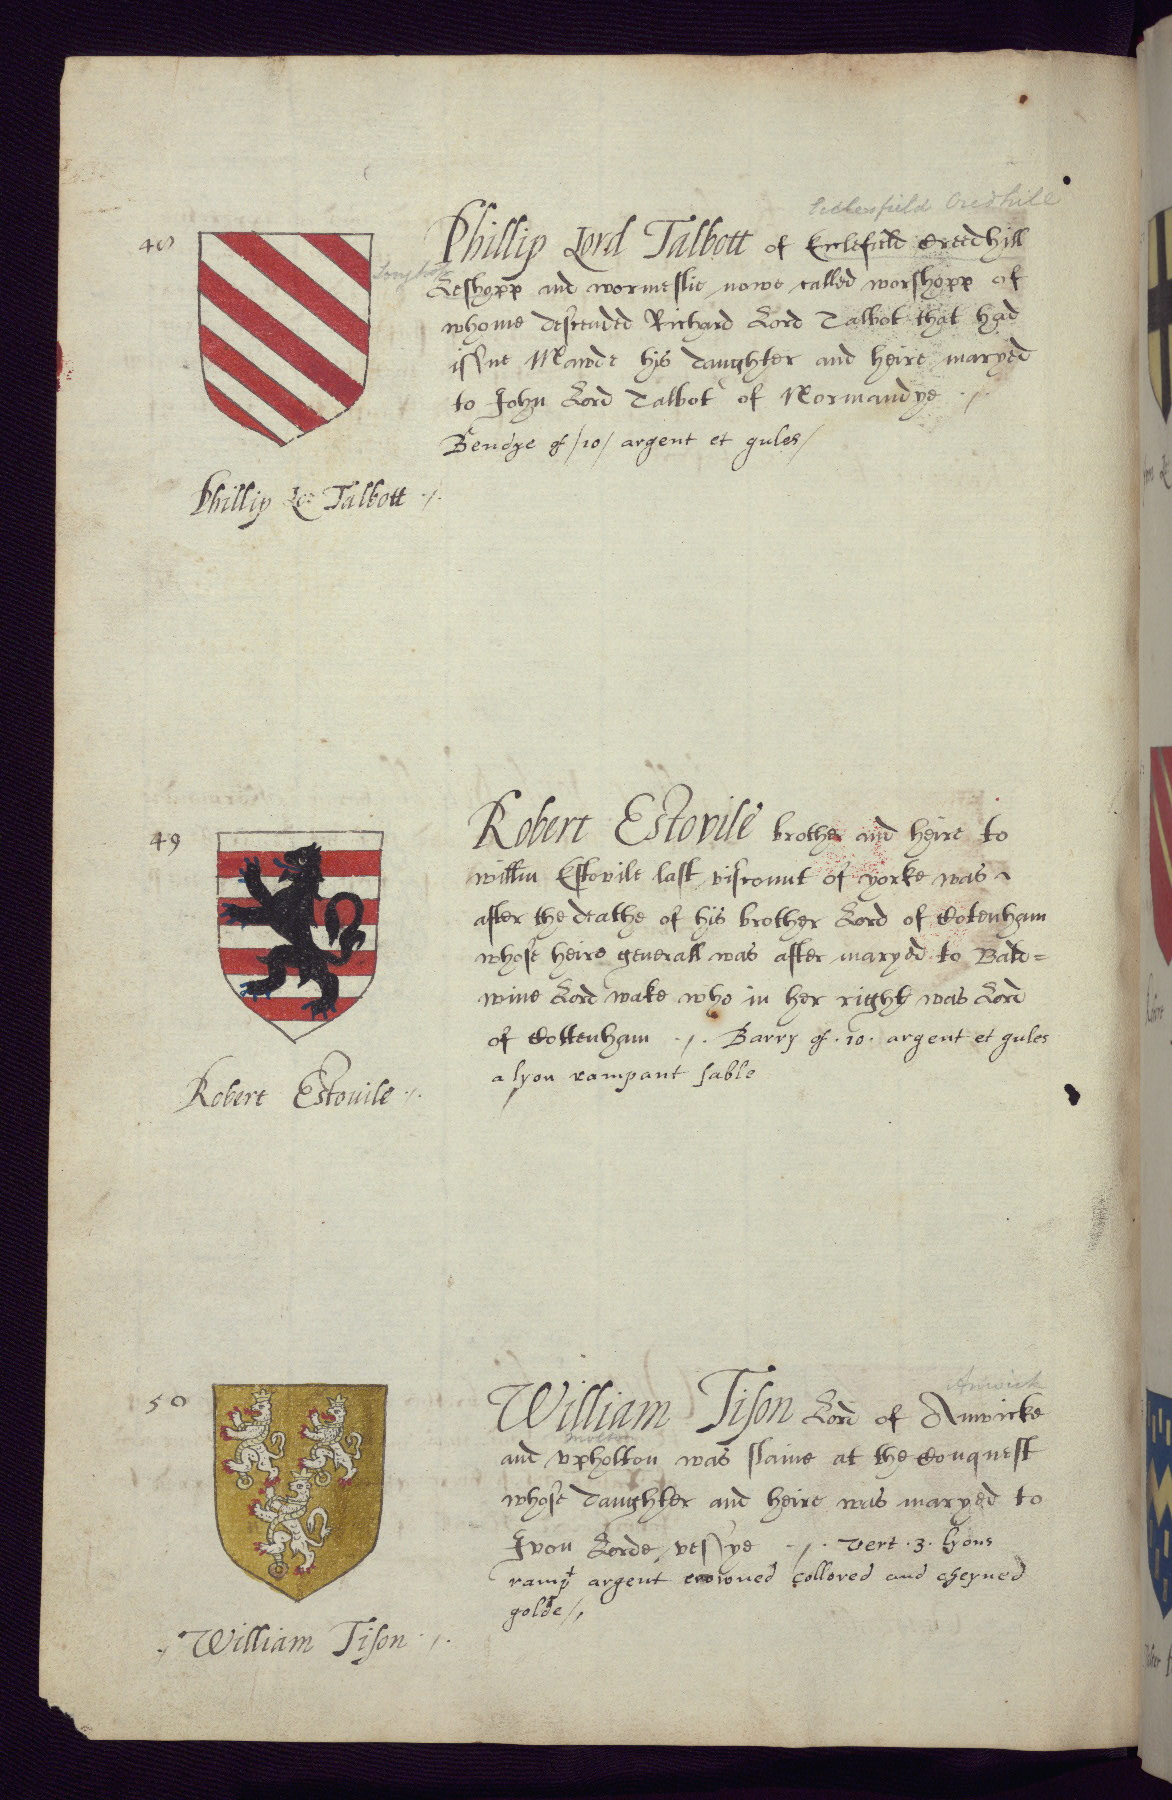 Ecclesfield Credhill
48
Phillip Lord Talbott of Erclefield Creedhill
Leshopp and wormeslie nowe called worshopp of
whome descended Richard Lord Talbot that had
issue Mawde his daughter and heire maryed
to John Lord Talbot of Normandye
Bendye of /10/ argent et gules/
Phillip Lo: Talbott
49
Robert Estovile brother and heire to
willm Estovile last viscount of yorke was
after the deathe of his brother Lord of Cotenham
whose heire generall was after maryed to Bald=
wine Lord wake who in her right was Lord
of Cottenham ./. Barry of .10. argent et gules
a lyon rampant sable
Robert Estovile
Anwick
50
William Tison Lord of Anwicke
molton
and vpholton was slaine at the Conquest
whose daughter and heire was maryed to
Ivon Lorde vessye ./. Vert .3. lyons
rampt argent crowned collored and cheyned
golde/,
William Tison